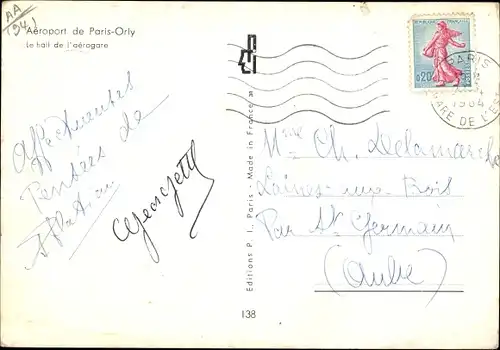 AA
(94)
Aéroport de Paris-Orly
Le hall de l'aérogare
Affectueuses
Pensées de
Georgette
Editions P. I., Paris - Made in France
138
REPUBLIQUE FRANÇAISE
0,20
PARIS
1964
GARE DE L'EST
Mme Ch. Delamarche
Laines-aux-Bois
Par St Germain
(Aube)